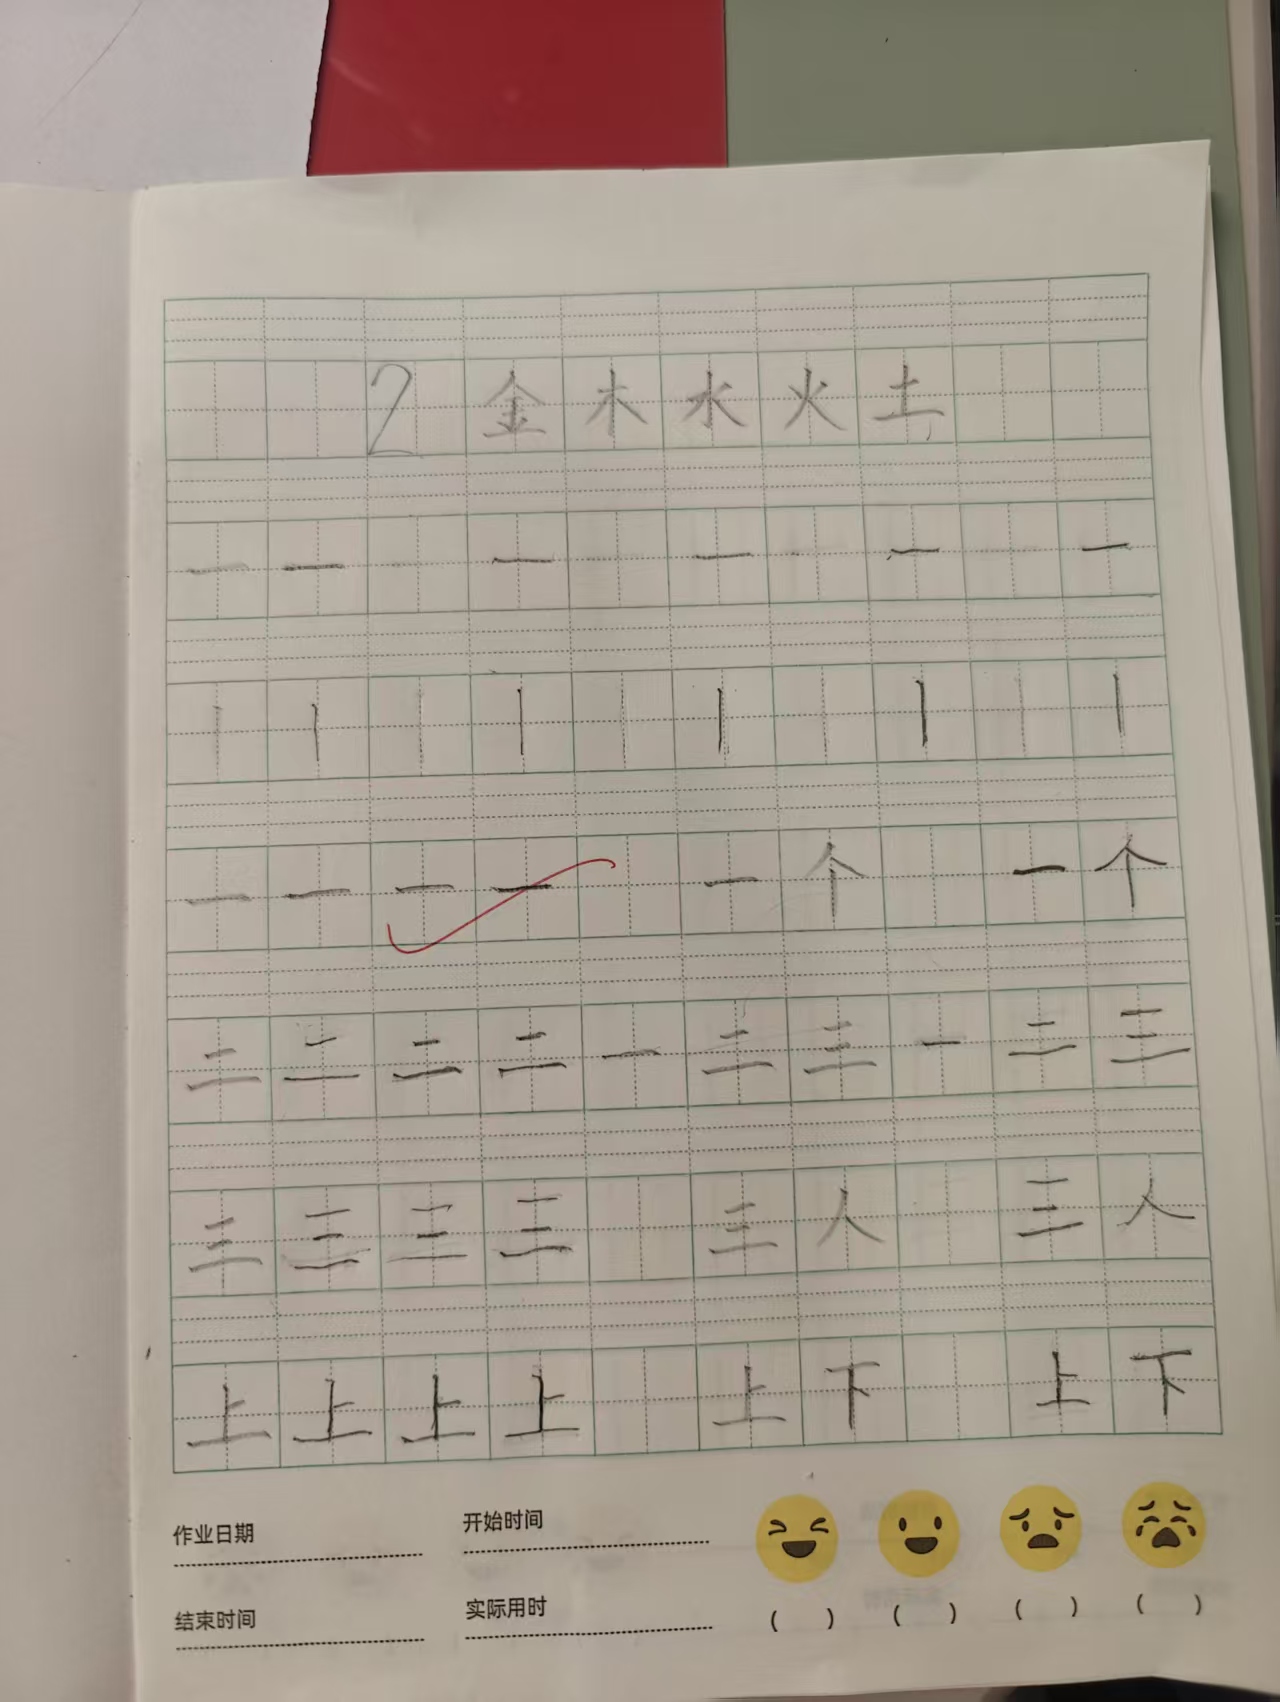 2 金 木 水 火 土
一 一 一 一 一 一
丨 丨 丨 丨 丨 丨 丨 丨 丨 丨
一 一 一 一 一 个 一 个
二 二 二 二 一 二 三 一 二 三
三 三 三 三 三 人 三 人
上 上 上 上 上 下 上 下
作业日期 开始时间
结束时间 实际用时
( ) ( ) ( ) ( )